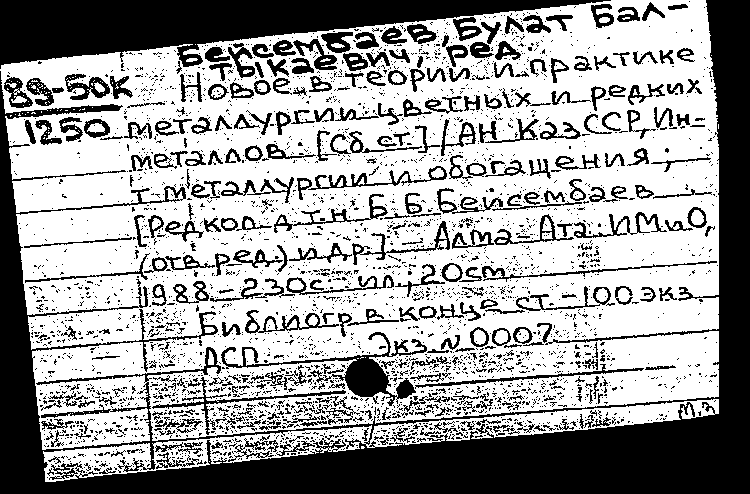 Бейсембаев, Булат Бал-
тыкаевич, ред.
89-50к
1250
Новое в теории и практике
металлургии цветных и редких
металлов: [Сб. ст.] / АН КазССР, Ин-
т металлургии и обогащения;
[Редкол. д.т.н. Б.Б. Бейсембаев
(отв. ред.) и др.] - Алма-Ата: ИМиО,
1988. - 230с. ил.; 20см.
Библиогр. в конце ст. - 100 экз.
ДСП. - Экз. № 0007
М.З